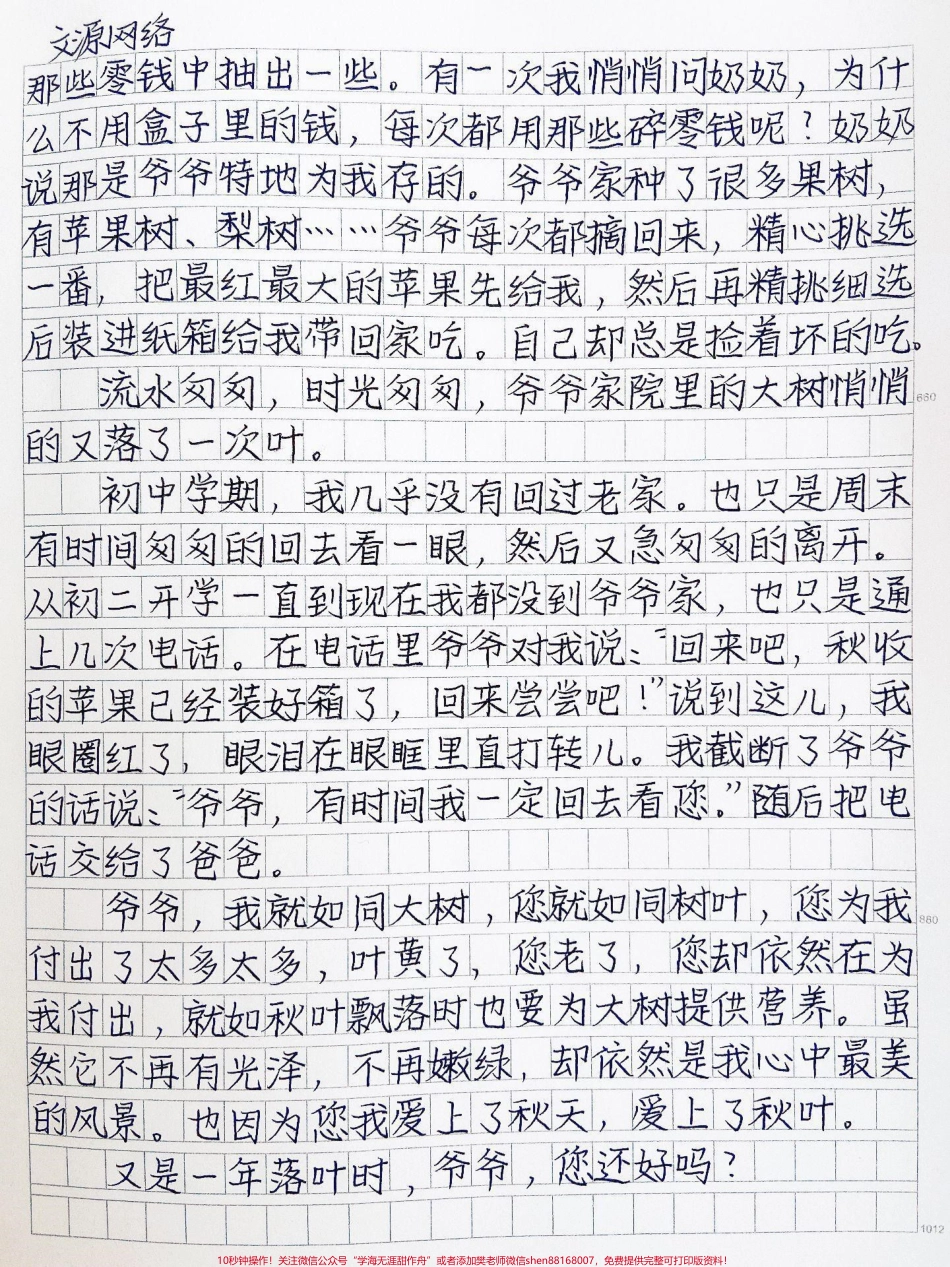 文源网络
那些零钱中抽出一些。有一次我悄悄问奶奶，为什
么不用盒子里的钱，每次都用那些碎零钱呢？奶奶
说那是爷爷特地为我存的。爷爷家种了很多果树，
有苹果树、梨树……爷爷每次都摘回来，精心挑选
一番，把最红最大的苹果先给我，然后再精挑细选
后装进纸箱给我带回家吃。自己却总是捡着坏的吃。
流水匆匆，时光匆匆，爷爷家院里的大树悄悄
660
的又落了一次叶。
初中学期，我几乎没有回过老家。也只是周末
有时间匆匆的回去看一眼，然后又急匆匆的离开。
从初二开学一直到现在我都没到爷爷家，也只是通
上几次电话。在电话里爷爷对我说：“回来吧，秋收
的苹果已经装好箱了，回来尝尝吧！”说到这儿，我
眼圈红了，眼泪在眼眶里直打转儿。我截断了爷爷
的话说：“爷爷，有时间我一定回去看您。”随后把电
话交给了爸爸。
爷爷，我就如同大树，您就如同树叶，您为我
880
付出了太多太多，叶黄了，您老了，您却依然在为
我付出，就如秋叶飘落时也要为大树提供营养。虽
然它不再有光泽，不再嫩绿，却依然是我心中最美
的风景。也因为您我爱上了秋天，爱上了秋叶。
又是一年落叶时，爷爷，您还好吗？
1012
10秒钟操作！关注微信公众号“学海无涯甜作舟”或者添加樊老师微信shen88168007，免费提供完整可打印版资料！